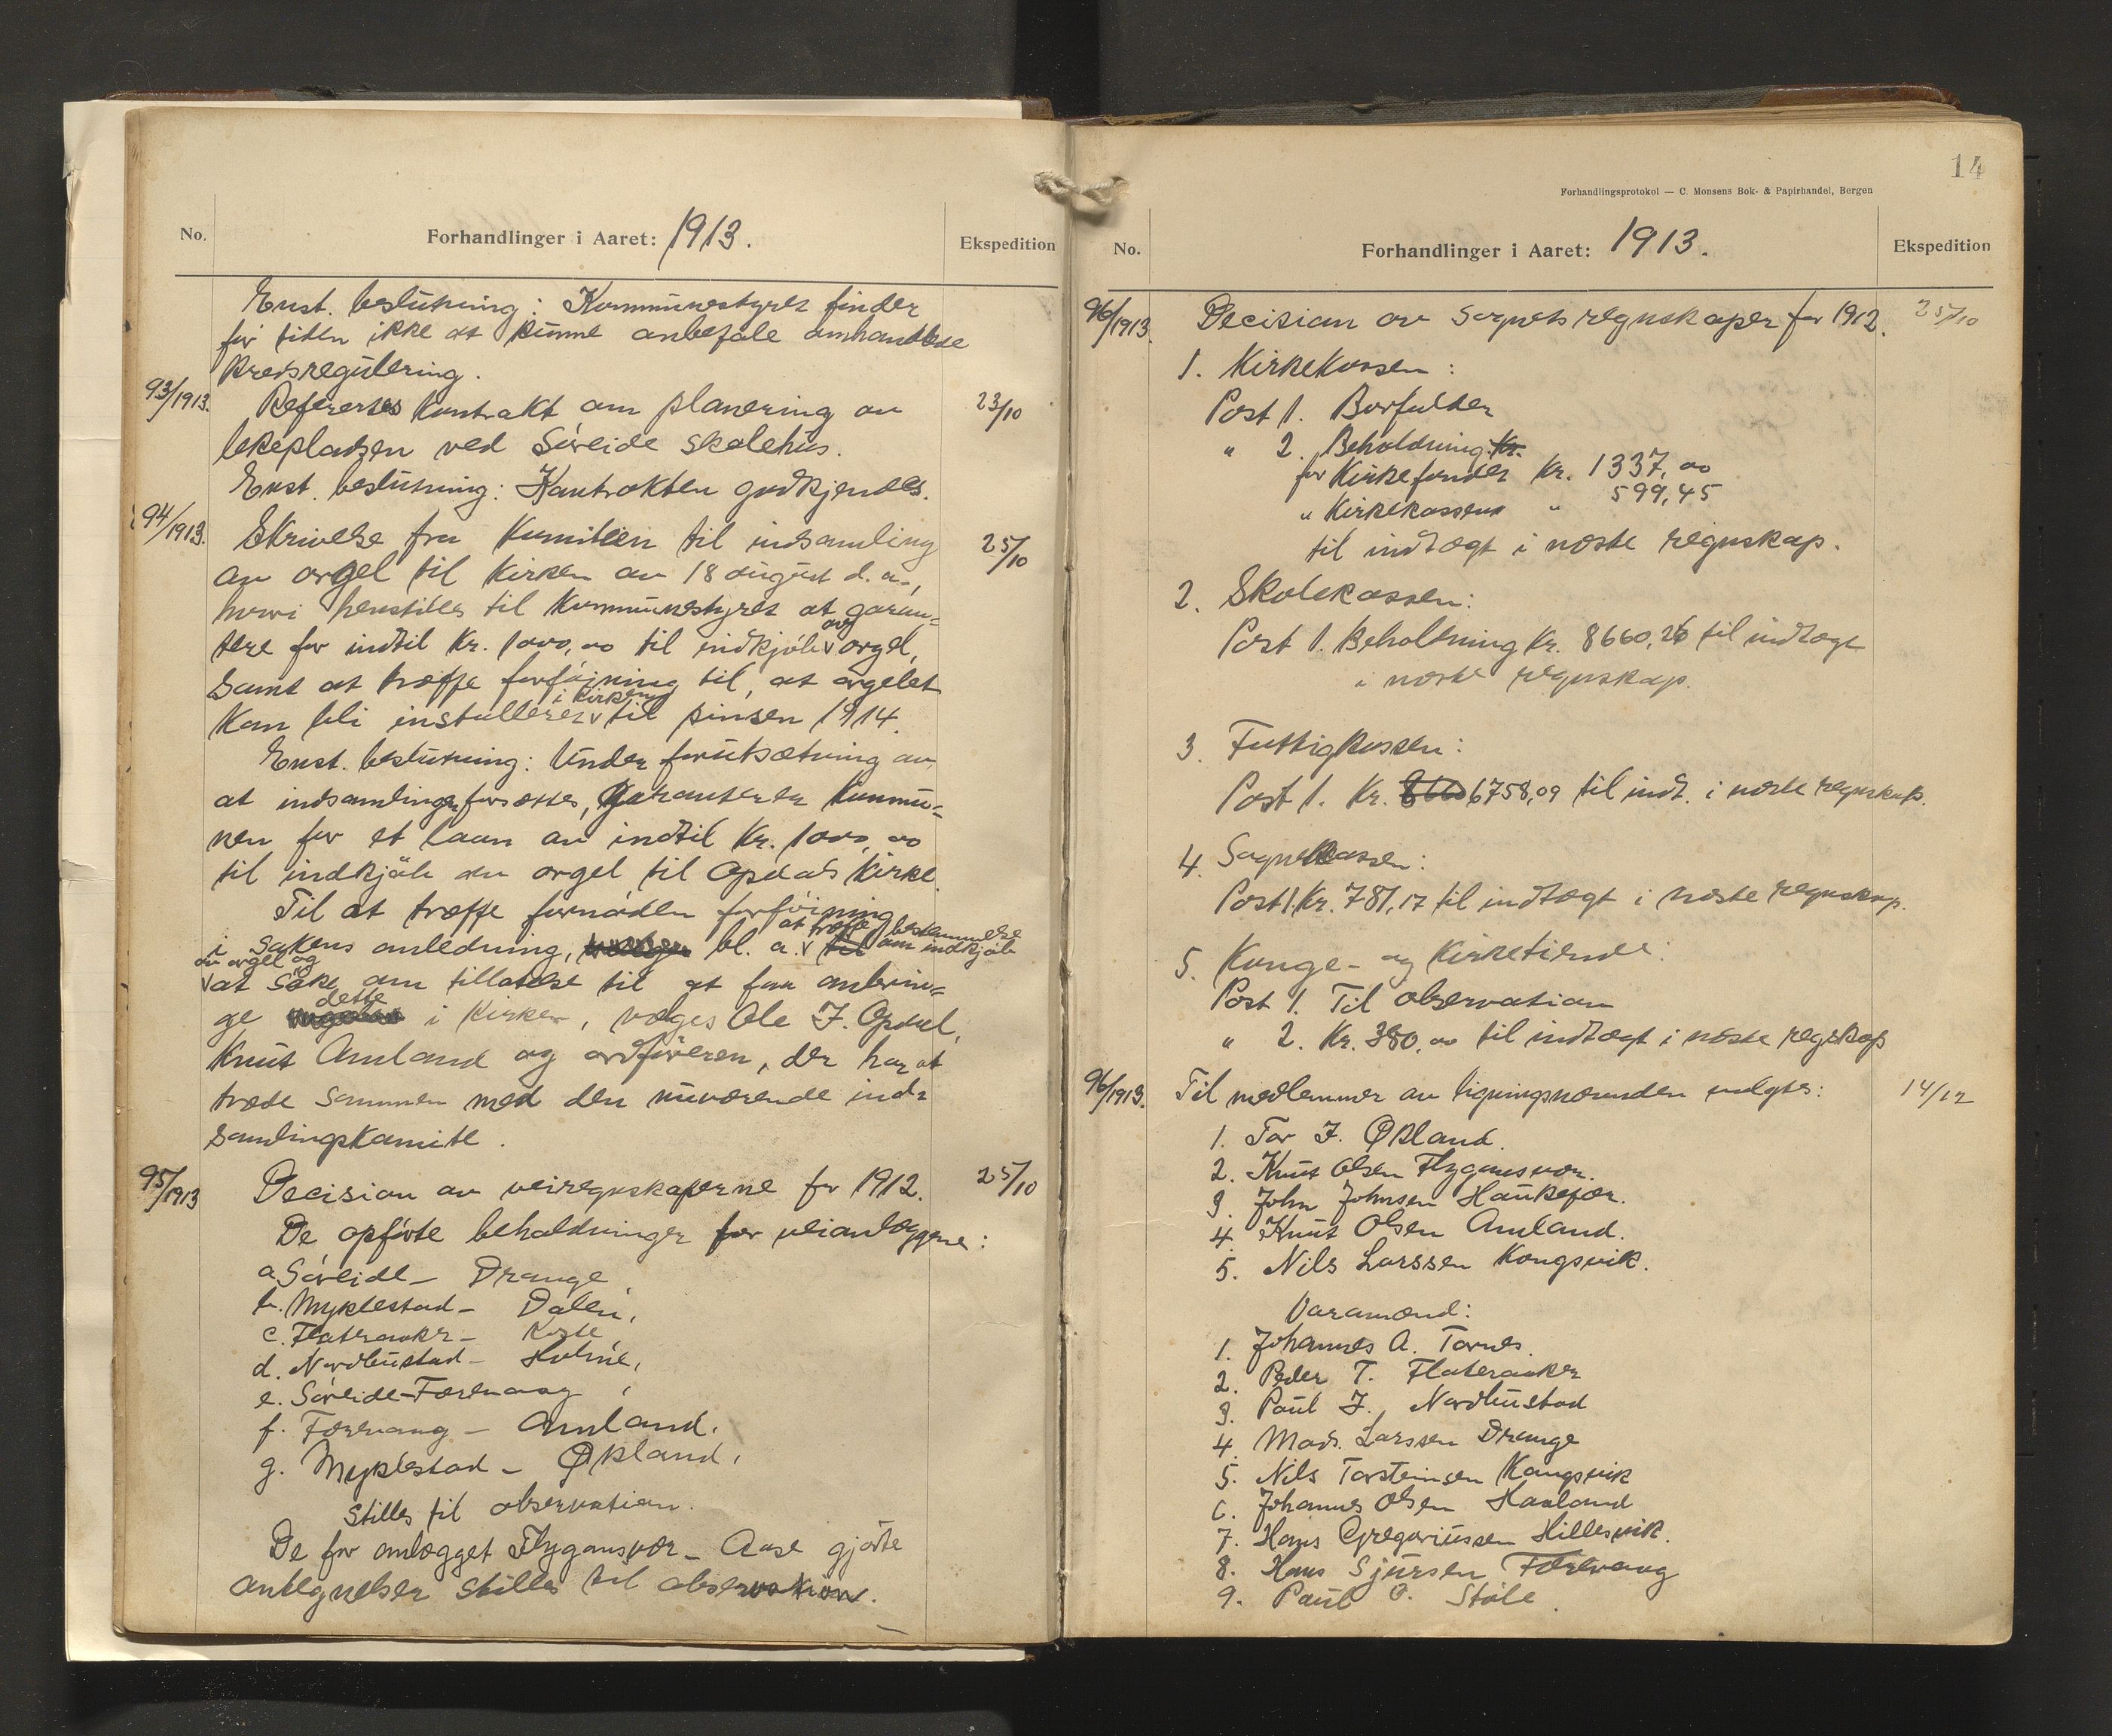 No.
Forhandlinger i Aaret: 1913.
Ekspedition
Enst. beslutning: Kommunestyret finder
for tiden ikke at kunne anbefale omhandlede
kredsregulering.
93/1913. Refereres kontrakt om planering av 23/10
lekepladsen ved Søreide skolehus.
Enst. beslutning: Kontrakten godkjendes.
94/1913. Skrivelse fra komiteen til indsamling 25/10
av orgel til kirken av 18 august d. a.,
hvori henstilles til kommunestyret at garan-
tere for indtil kr. 1000,00 til indkjøb av orgel,
samt at træffe forføining til, at orgelet
kan bli installeret i kirken til pinsen 1914.
Enst. beslutning: Under forutsætning av,
at indsamlingen forsættes, garanterer kommu-
nen for et laan av indtil kr. 1000,00
til indkjøb av orgel til Opdals kirke.
Til at træffe fornøden forføining
i sakens anledning, bl. a. at træffe bestemmelse om indkjøb
av orgel og at søke om tillatelse til at faa anbrin-
ge dette i kirken, vælges Ole J. Opdal,
Knut Amland og ordføreren, der har at
træde sammen med den nuværende ind-
samlingskomite.
95/1913 Decision av veiregnskaperne for 1912. 25/10
De opførte beholdninger for veianlæggene:
a. Søreide - Drange
b. Myklestad - Dalen,
c. Flateraaker -
d. Nordhustad - Holme,
e. Søreide - Færevaag,
f. Færevaag - Amland,
g. Myklestad - Økland,
stilles til observation.
De for anlægget Flygansvær - Aase gjorte
antegnelser stilles til observation.
14
Forhandlingsprotokol — C. Monsens Bok- & Papirhandel, Bergen
No.
Forhandlinger i Aaret: 1913.
Ekspedition
96/1913. Decision av sognets regnskaper for 1912. 25/10
1. Kirkekassen:
Post 1. Bortfalder
" 2. Beholdning kr.
for Kirkefondet kr. 1337,00
" Kirkekassen " 599,45
til indtægt i næste regnskap.
2. Skolekassen:
Post 1. Beholdning kr. 8660,26 til indtægt
i næste regnskap.
3. Fattigkassen:
Post 1. Kr. 6758,09 til indt. i næste regnskap.
4. Sognekassen:
Post 1. Kr. 781,17 til indtægt i næste regnskap.
5. Konge- og Kirketiende:
Post 1. Til observation
" 2. Kr. 380,00 til indtægt i næste regskap
96/1913. Til medlemmer av ligningsnævnden valgtes: 14/12
1. Tor J. Økland.
2. Knut Olsen Flygansvær.
3. John Johnsen Haukefær.
4. Knut Olsen Amland.
5. Nils Larssen Kongsvik.
Varamænd:
1. Johannes A. Tornes.
2. Peder T. Flateraaker
3. Paul J. Nordhustad
4. Mads Larssen Drange
5. Nils Torsteinsen Kongsvik
6. Johannes Olsen Haaland
7. Hans Gregoriussen Hillesvik.
8. Hans Sjursen Færevaag
9. Paul O. Støle.